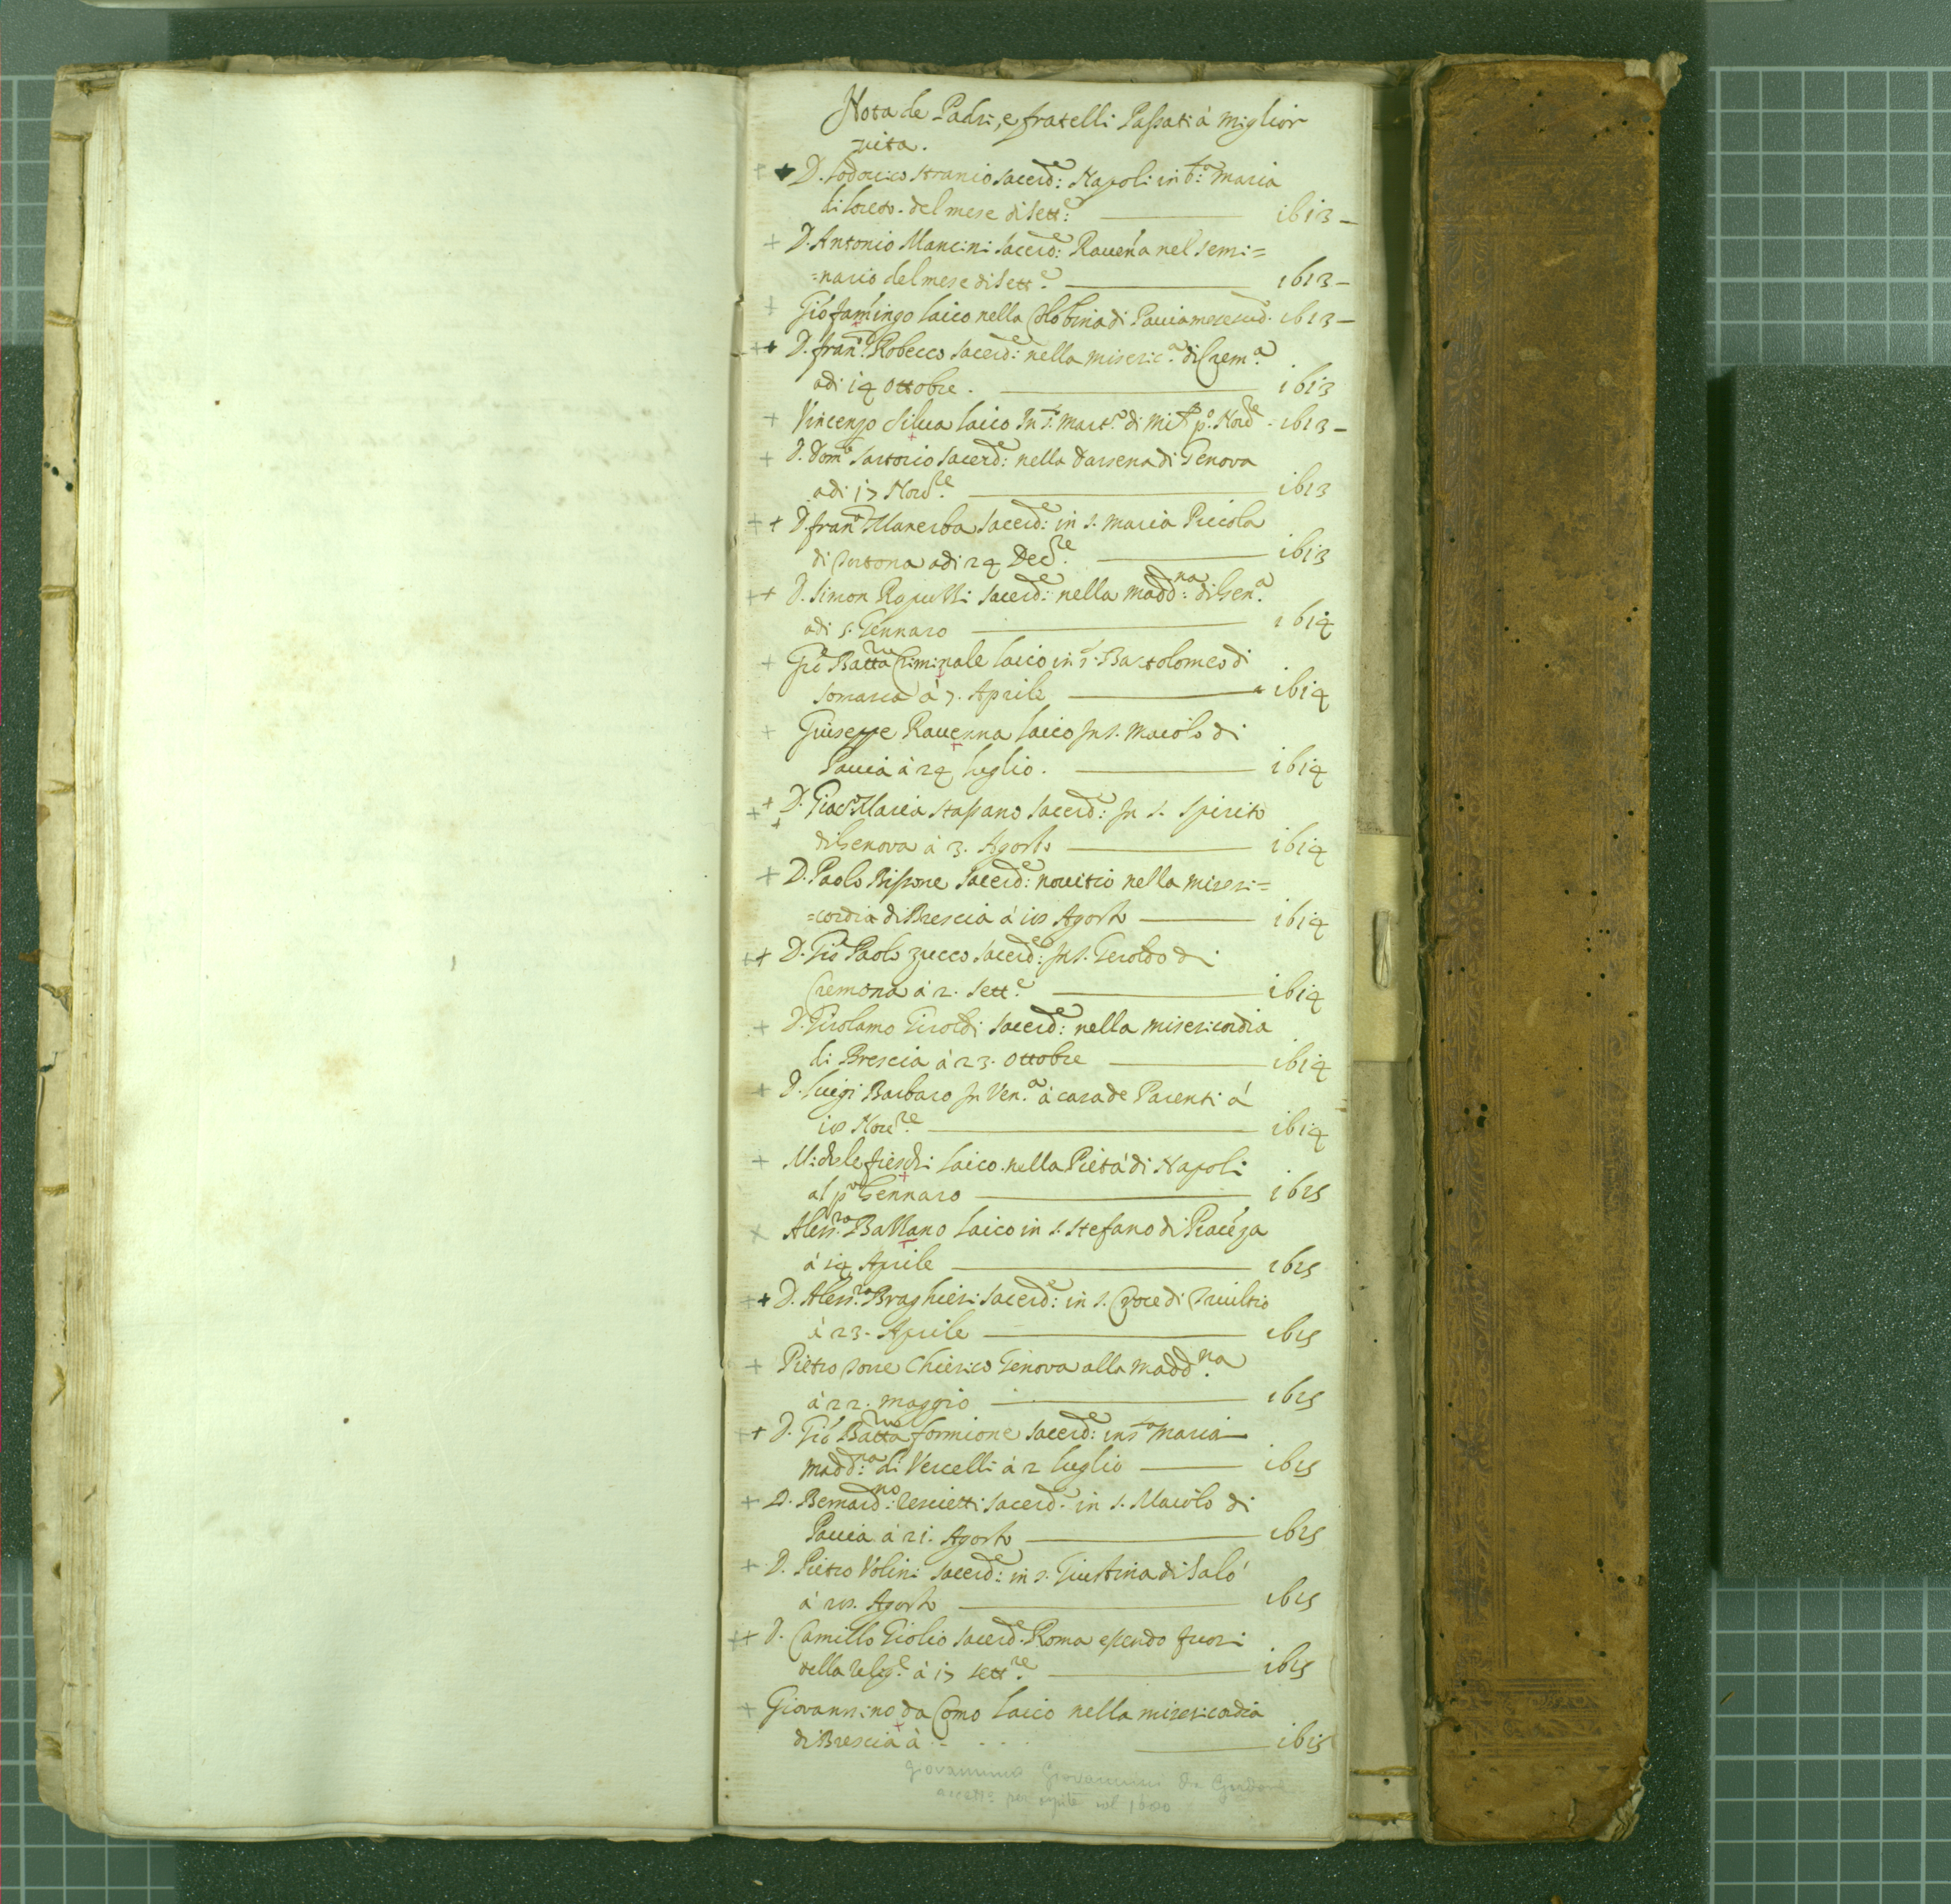 Nota de Padri, e fratelli Passati à miglior
vita.
D. Lodovico Stranio Sacerd:e Napoli in S:ta Maria
di Loreto del mese di Sett:e 1613
D. Antonio Mancini Sacerd:e Raueña nel Semi=
=nario del mese di Sett.e 1613
Gio: fiamingo laico nella Colõbina di Pauia mese sud. 1613
D. fran.co Robecco Sacerd:e nella miseric.a di Crem.a
adi 14 Ottobre. 1613
Vincenzo Silua laico In S. Mart.o di Mil.o p.o Nov.re 1613
D. Dom.co Sartorio Sacerd:e nella darsena di Genova
adi 17 Nov.re 1613
D. fran.co Manerba Sacerd:e in S. Maria Piccola
di Tortona adi 24 Dec.re 1613
D. Simon Rapetti Sacerd:e nella madd:na di Gen.a
adi 5. Gennaro 1614
Gio Batta Criminale laico in S. Bartolomeo di
Somasca à 7. Aprile 1614
Giuseppe Rauenna laico In S. Maiolo di
Pauia à 24 luglio. 1614
D. Giac.o Maria Stassano Sacerd:e In S. Spirito
di Genova à 3. Agosto 1614
D. Paolo Bissone Sacerd:e nouitio nella miseri=
=cordia di Brescia à 10 Agosto 1614
D. Gio Paolo Zucco Sacerd:e In S. Geroldo di
Cremona à 2. Sett.e 1614
D. Girolamo Giroldi Sacerd:e nella misericordia
di Brescia à 23. Ottobre 1614
D. Luigi Barbaro In Ven.a à casa de Parenti à
10 Nov.re 1614
Michele fieschi laico nella Pietà di Napoli
al p.o Gennaro 1615
Aless.ro Ballano laico in S. Stefano di Piacẽza
à 14 Aprile 1615
D. Aless.ro Braghieri Sacerd:e in S. Croce di Triultio
à 23. Aprile 1615
Pietro Torre Chierico Genova alla madd.na
à 22. maggio 1615
D. Gio Batta formione Sacerd:e in S.ta Maria
madd:na di Vercelli à 2 luglio 1615
D. Bernard:no Sacerd. in S. Maiolo di
Pauia à 21. Agosto 1615
D. Pietro Volini Sacerd:e in S. Giustina di Salò
à 20. Agosto 1615
D. Camillo Giolio Sacerd.e Roma essendo fuori
della Relig.e à 17 Sett.re 1615
Giovannino da Como laico nella misericordia
di Brescia à 1615
Giovannino Giovannini da
accett.o per ospite nel 1600